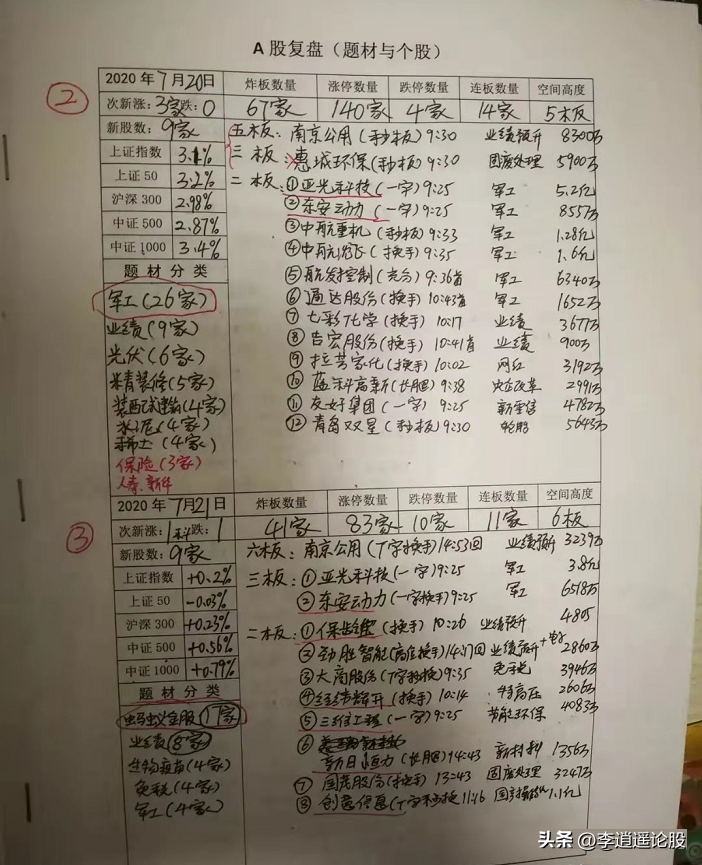 A股复盘（题材与个股）
②
2020年7月20日 炸板数量 涨停数量 跌停数量 连板数量 空间高度
次新涨：3家跌：0 67家 140家 4家 14家 5板
新股数：9家 五板：南京公用（秒板）9:30 业绩预升 8300万
上证指数 3.1% 三板：惠城环保（秒板）9:30 固废处理 5900万
上证50 3.2% 二板：①亚光科技（一字）9:25 军工 5.2亿
沪深300 2.98% ②东安动力（一字）9:25 军工 8557万
中证500 2.87% ③中航重机（秒板）9:33 军工 1.28亿
中证1000 3.4% ④中航沈飞（换手）9:35 军工 1.6亿
题材分类 ⑤航发控制（充分）9:36首 军工 6340万
军工（26家） ⑥通达股份（换手）10:43首 军工 1652万
业绩（9家） ⑦七彩化学（换手）10:17 业绩 3677万
光伏（6家） ⑧吉宏股份（换手）10:41首 业绩 900万
精装修（5家） ⑨拉芳家化（换手）10:02 网红 3192万
装配式建筑（4家） ⑩蓝科高新（长腿）9:38 央企改革 2991万
水泥（4家） ⑪友好集团（一字）9:25 新零售 4782万
稀土（4家） ⑫青岛双星（秒板）9:30 轮胎 5643万
保险（3家）
人寿、新华
③
2020年7月21日 炸板数量 涨停数量 跌停数量 连板数量 空间高度
次新涨：1家跌：1 41家 83家 10家 11家 6板
新股数：9家 六板：南京公用（T字换手）14:53回 业绩预升 3239万
上证指数 +0.2% 三板：①亚光科技（一字）9:25 军工 3.8亿
上证50 -0.03% ②东安动力（一字换手）9:25 军工 6518万
沪深300 +0.23% 二板：①保龄宝（换手）10:26 业绩预升 4805
中证500 +0.56% ②劲胜智能（高位换手）14:17回 业绩预升 2860万
中证1000 +0.79% ③大商股份（T字秒换）9:35 免税 3946万
题材分类 ④经纬辉开（换手）10:14 特高压 2606万
蚂蚁金服（17家） ⑤三维工程（一字）9:25 节能环保 4083万
业绩（8家） ⑥
生物疫苗（4家） 新日恒力（长腿）14:43 新材料 1356万
免税（4家） ⑦国茂股份（换手）13:43 固废处理 3247万
军工（4家） ⑧创意信息（T字不秒换）11:16 1.1亿
头条 @李逍遥论股